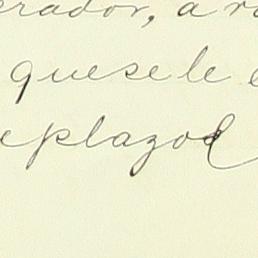 erador, a
que se le
eplazo